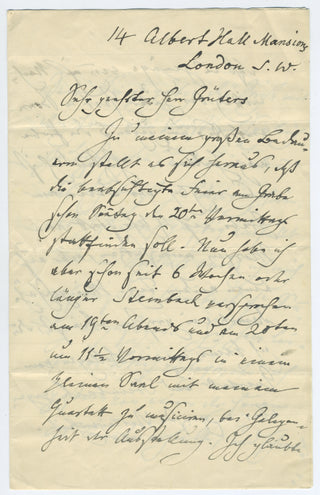 14 Albert Hall Mansions
London S. W.
Sehr geehrter Herr Grüters
Zu meinem großen Bedau-
ern stellt es sich heraus, daß
die beabsichtigte Feier am Grabe
schon Sonntag den 20ten Vormittags
stattfinden soll. Nun habe ich
aber schon seit 6 Wochen oder
länger Steinbach versprochen
am 19ten Abends und am 20ten
um 11½ Vormittags in einem
kleinen Saal mit meinem
Quartett zu musiciren, bei Gelegen-
heit der Ausstellung. Ich glaubte